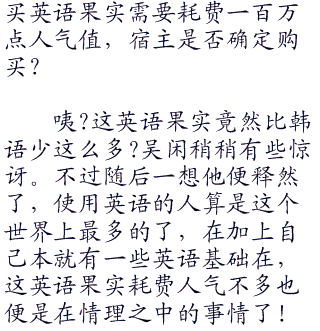 买英语果实需要耗费一百万
点人气值，宿主是否确定购
买？
咦？这英语果实竟然比韩
语少这么多？吴闲稍稍有些惊
讶。不过随后一想他便释然
了，使用英语的人算是这个
世界上最多的了，在加上自
己本就有一些英语基础在，
这英语果实耗费人气不多也
便是在情理之中的事情了！